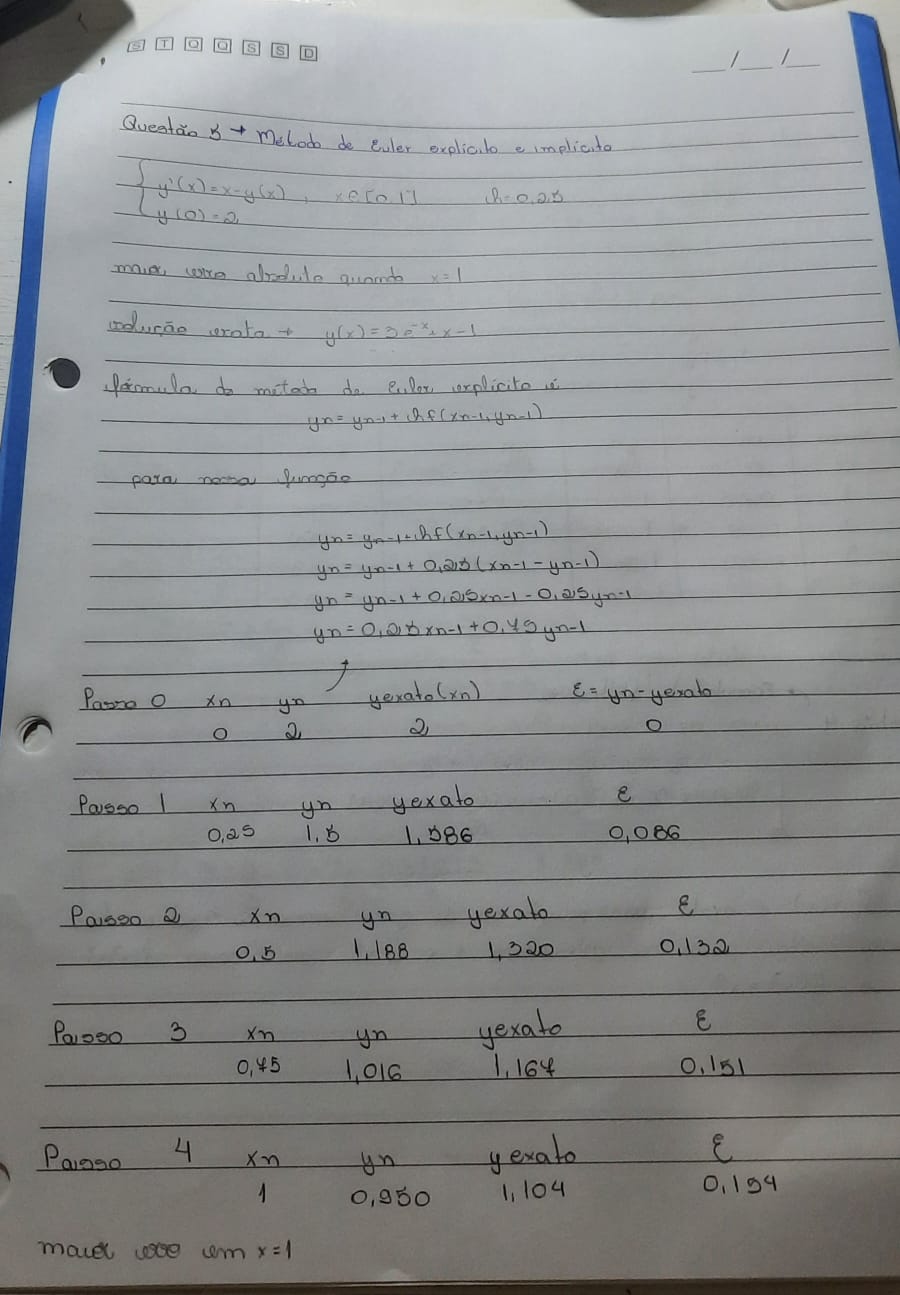 S T Q Q S S D
__/__/__
Questão 5 → Método de Euler explícito e implícito
{ y'(x)=x-y(x), x∈[0,1] h=0,25
y(0)=2
maior erro absoluto quando x=1
solução exata → y(x)=3e^-x+x-1
fórmula do método de Euler explícito é
yn=yn-1+hf(xn-1,yn-1)
para nossa função
yn=yn-1+hf(xn-1,yn-1)
yn=yn-1+0,25(xn-1-yn-1)
yn=yn-1+0,25xn-1-0,25yn-1
yn=0,25xn-1+0,75yn-1
Passo 0 xn yn yexato(xn) ε=yn-yexato
0 2 2 0
Passo 1 xn yn yexato ε
0,25 1,5 1,586 0,086
Passo 2 xn yn yexato ε
0,5 1,188 1,320 0,132
Passo 3 xn yn yexato ε
0,75 1,016 1,167 0,151
Passo 4 xn yn yexato ε
1 0,950 1,104 0,154
maior erro em x=1